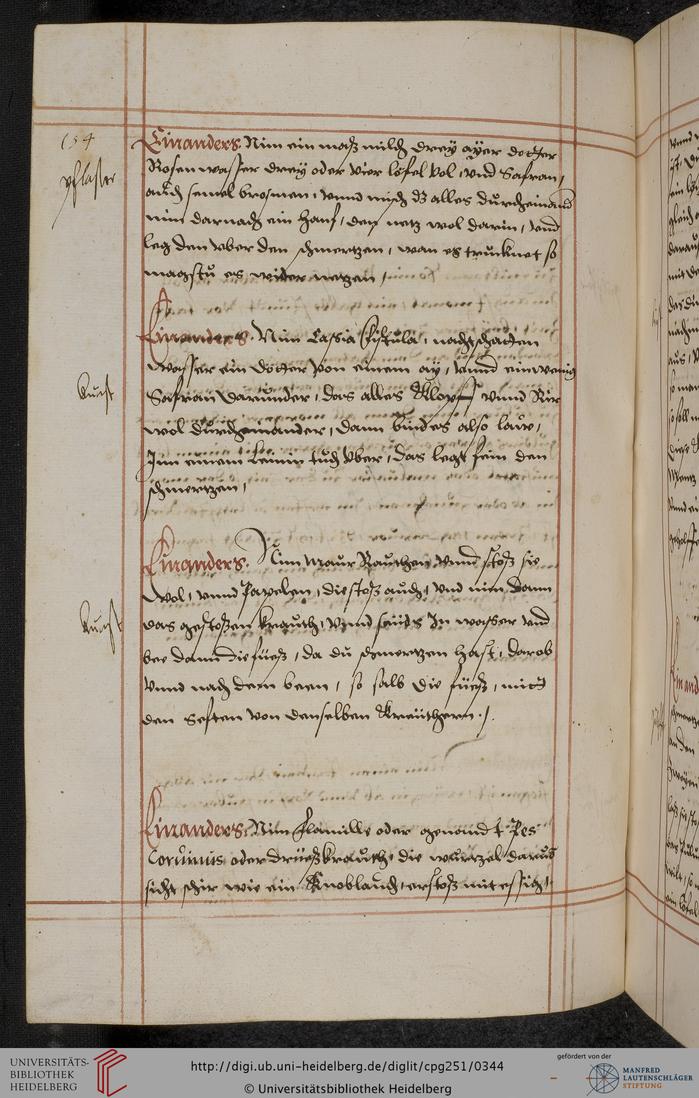 154
pflaster
Einanders. Nim ein maß milch drey ayer dotter
Rosen wasser drey oder vier löfel vol, vnd Safran,
auch semel brosmen, vnnd misch dz alles durcheinand
nim darnach ein hanf, den netz wol darin, vnd
leg den vber den schmertzen, wan es trucknet so
magstu es wider netzen,
Kunst
Einanders. Nim Cassia fistula, nachtschatten
wasser ein dotter von einem ay, vnnd ein wenig
Safran darunder, das alles Klopff vnnd Rür
wol durcheinander, dann bind es also lauw,
Jnn einem Leinin tuch vber, das legt fein den
schmertzen,
Kunst
Einanders. Nim maur Rauthen vnnd stoß sie
wol, vnnd Papelen, die stoß auch, vnd nim dann
das gestoßen krauth, vnnd seuds Jn wasser vnd
bee dann die füeß, da du schmertzen hast, darob
vnnd nach dem beeen, so salb die füeß, mitt
den Seften von denselben Kreüthern.
Einanders. Nim flamille oder genand Pes
Coruinus oder drüeßkrauth die wurzel darus
sicht schir wie ein Knoblauch, erstoß mit essicht
UNIVERSITÄTS-
BIBLIOTHEK
HEIDELBERG
http://digi.ub.uni-heidelberg.de/diglit/cpg251/0344
© Universitätsbibliothek Heidelberg
gefördert von der
MANFRED
LAUTENSCHLÄGER
STIFTUNG